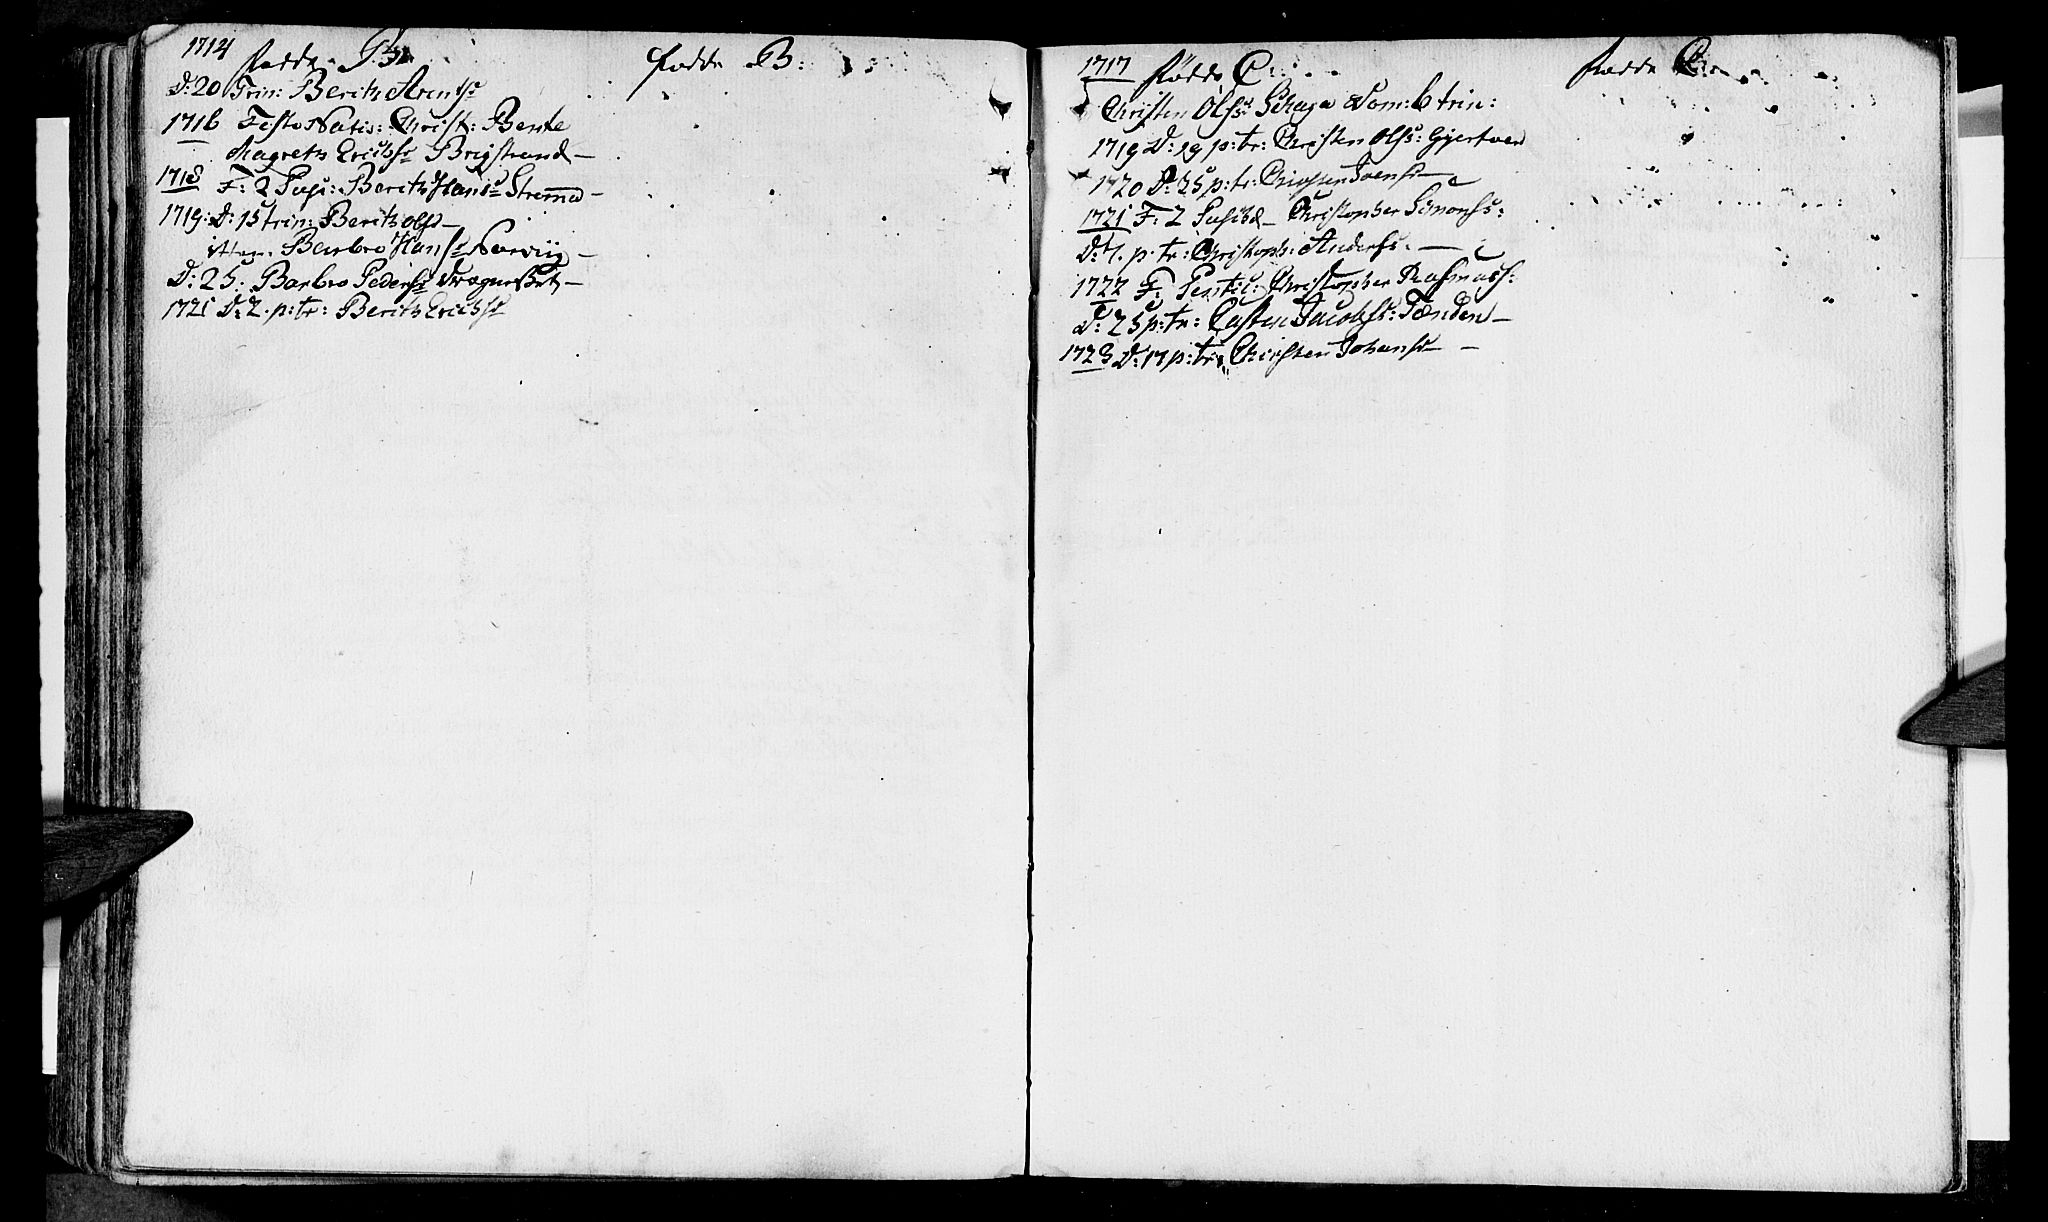 1714 fødde B:
D: 20 Trin: Berith Arentsd
1716 Festo Natiu: Christ: Bente
Magreth Erichsd Brigstrand –
1718 F: 2 Pasc: Berith Hansd Strømmd –
1719: D: 15 trin: Berith Olsd –
item. Barbro Hansd Norviig –
D: 25. Barbro Pedersd Drægneset –
1721 D: 2. p: tr: Berith Erichsd
fødde B:
1717 fødde C:
Christen Olss: Schaga Dom: 6 trin:
1719 D: 19 p: tr: Christen Olss: Gjertven
1720 D: 25 p: tr: Christen Ivenss –
1721 F: 2 Pasch – Christopher Simonss:
D: 7. p. tr: Christoph: Anderss. –
1722 F: Pentic: Christopher Rasmuss:
D: 25 p: tr: Casten Jacobss: Tænden –
1723 D: 17 p: tr: Christen Johanss –
fødde C: